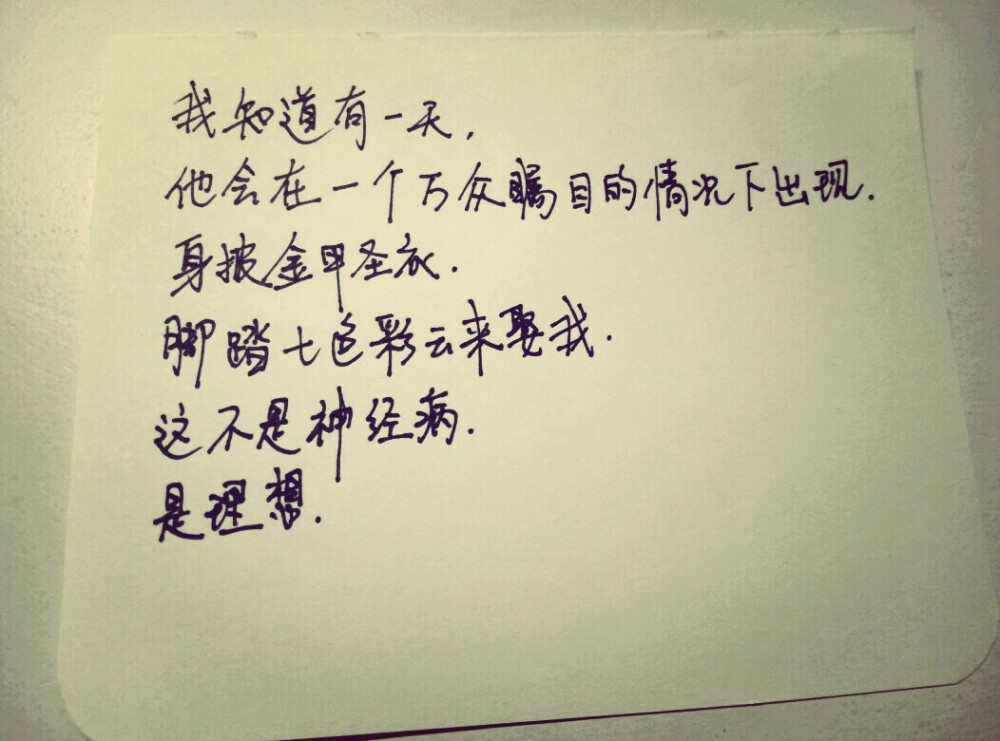 我知道有一天,
他会在一个万众瞩目的情况下出现.
身披金甲圣衣.
脚踏七色彩云来娶我.
这不是神经病.
是理想.